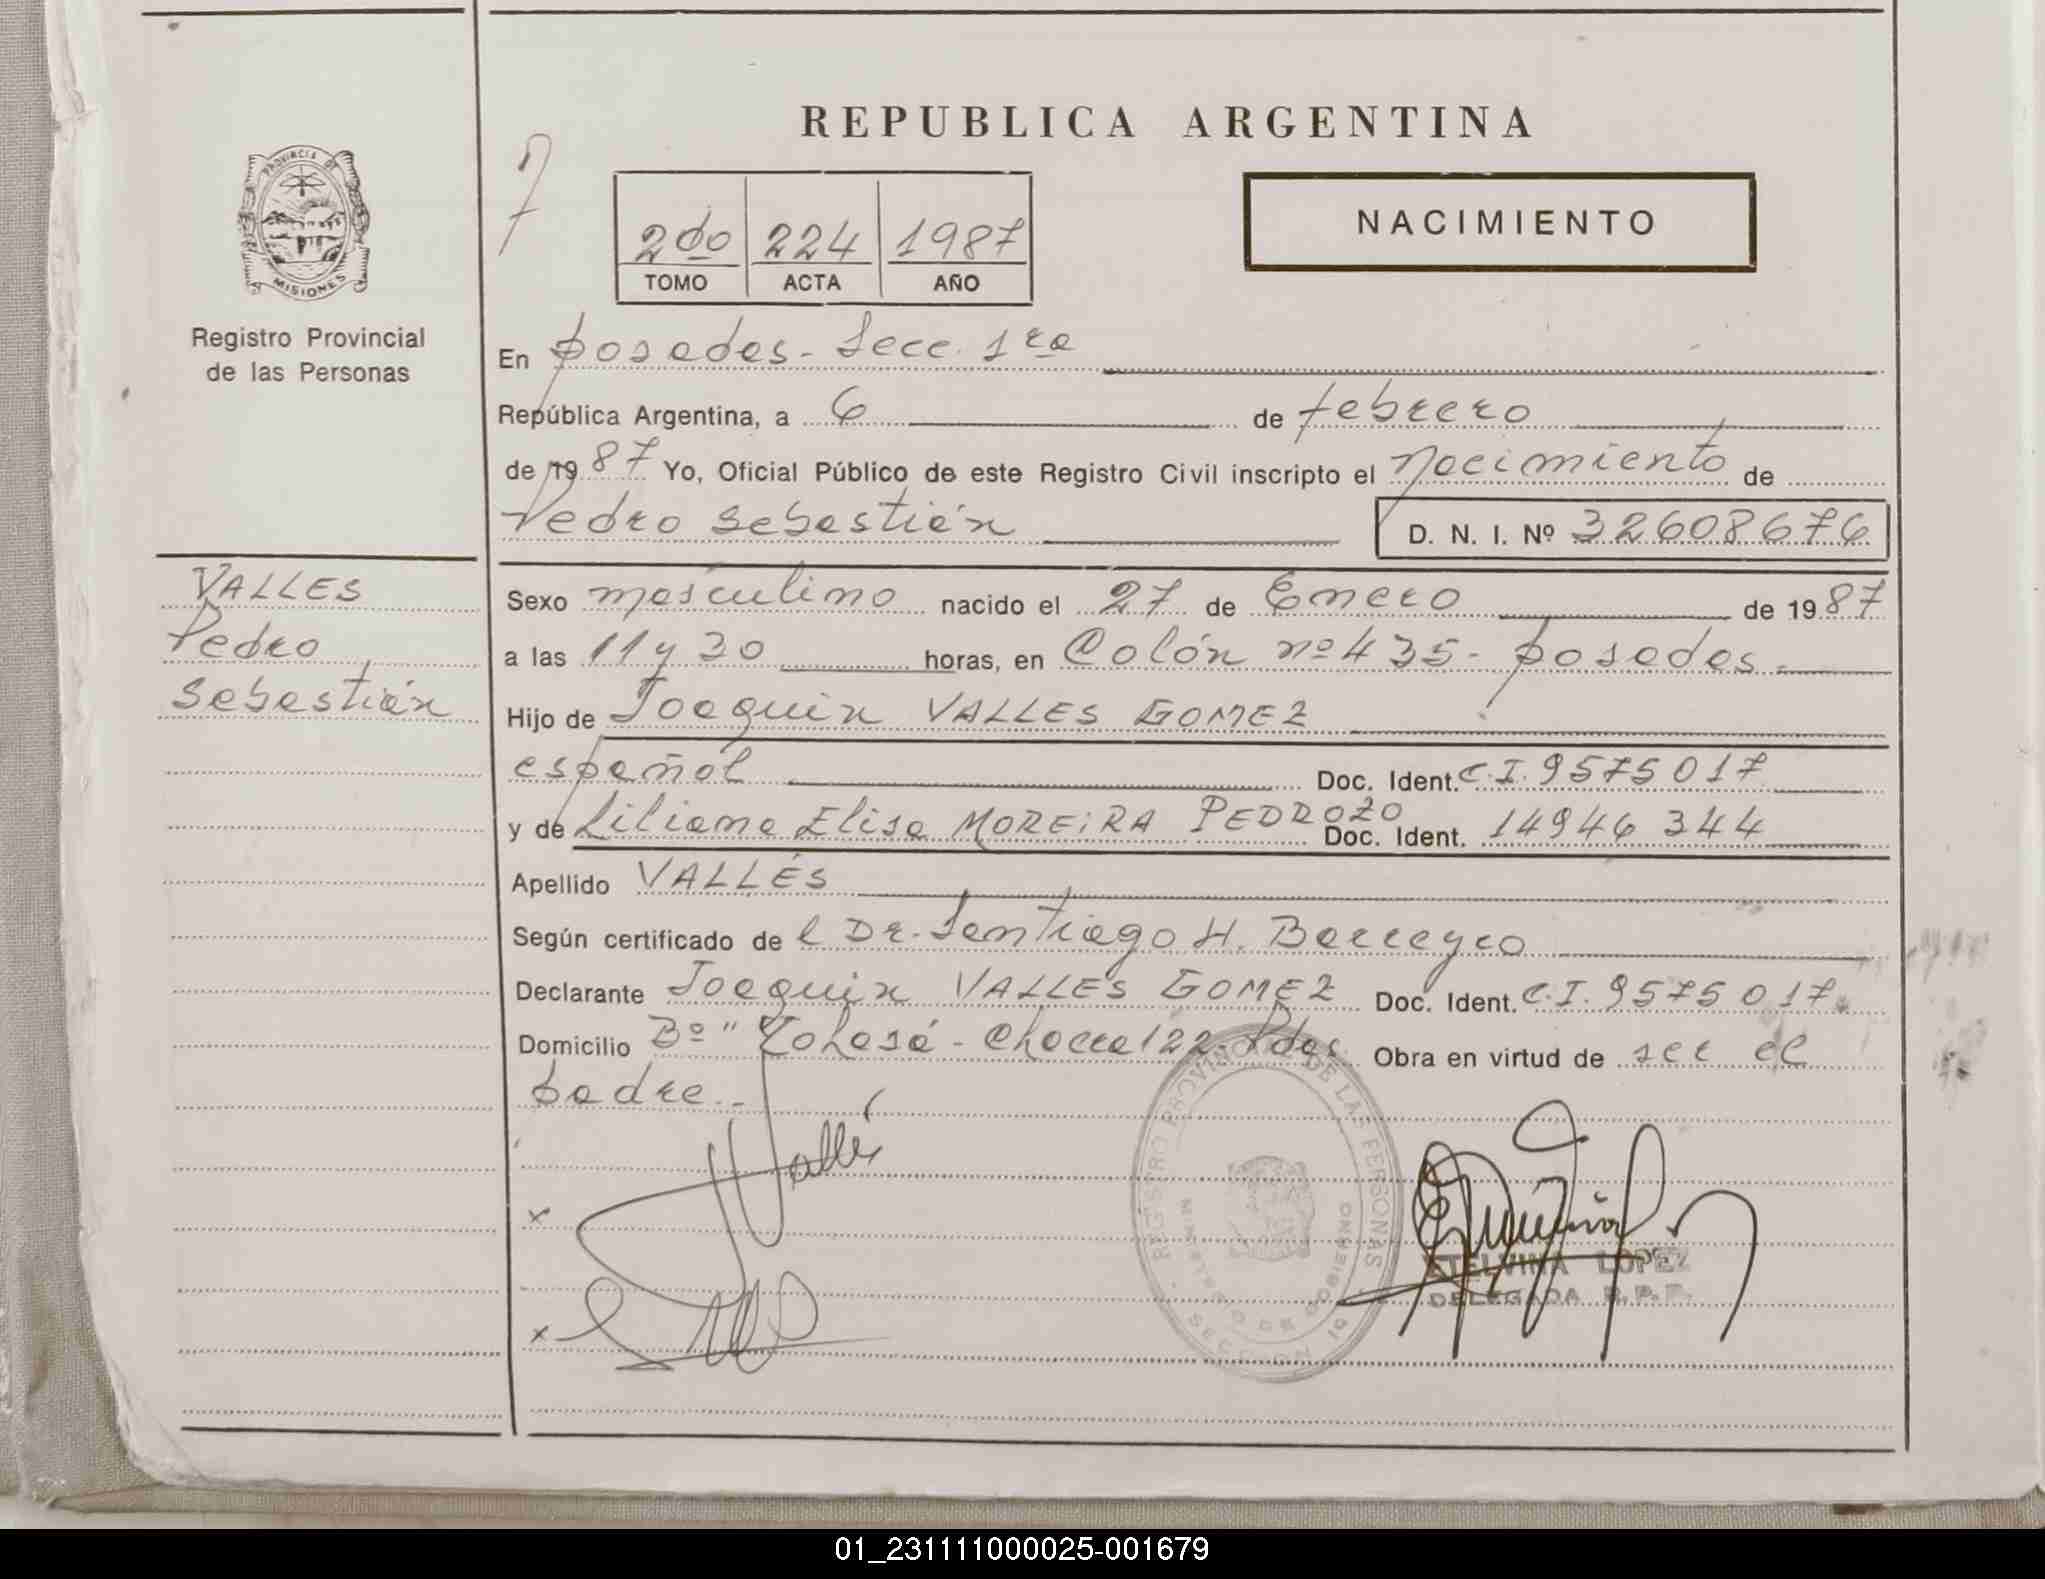 REPUBLICA ARGENTINA
PROVINCIA DE
MISIONES
Registro Provincial
de las Personas
7
2do 224 1987
TOMO ACTA AÑO
NACIMIENTO
En Posadas - Secc. 1ra
República Argentina, a 6 de febrero
de 1987 Yo, Oficial Público de este Registro Civil inscripto el nacimiento de
Pedro Sebastián D. N. I. Nº 32608676
VALLES
Pedro
Sebastián
Sexo masculino nacido el 27 de Enero de 1987
a las 11 y 30 horas, en Colón nº 435 - Posadas.
Hijo de Joaquín VALLES GOMEZ
español Doc. Ident. C.I. 9575017
y de Liliana Elisa MOREIRA PEDROZO Doc. Ident. 14946344
Apellido VALLÉS
Según certificado de l Dr. Santiago H. Barreyro
Declarante Joaquín VALLES GOMEZ Doc. Ident. C.I. 9575017
Domicilio Bº " - Chacra 122 - Pdas. Obra en virtud de ser el
padre.-
Vallés
x
x
REGISTRO PROVINCIAL DE LAS PERSONAS
MINISTERIO DE GOBIERNO
SECCION 1ª
ETELVINA LOPEZ
DELEGADA R.P.P.
01_231111000025-001679